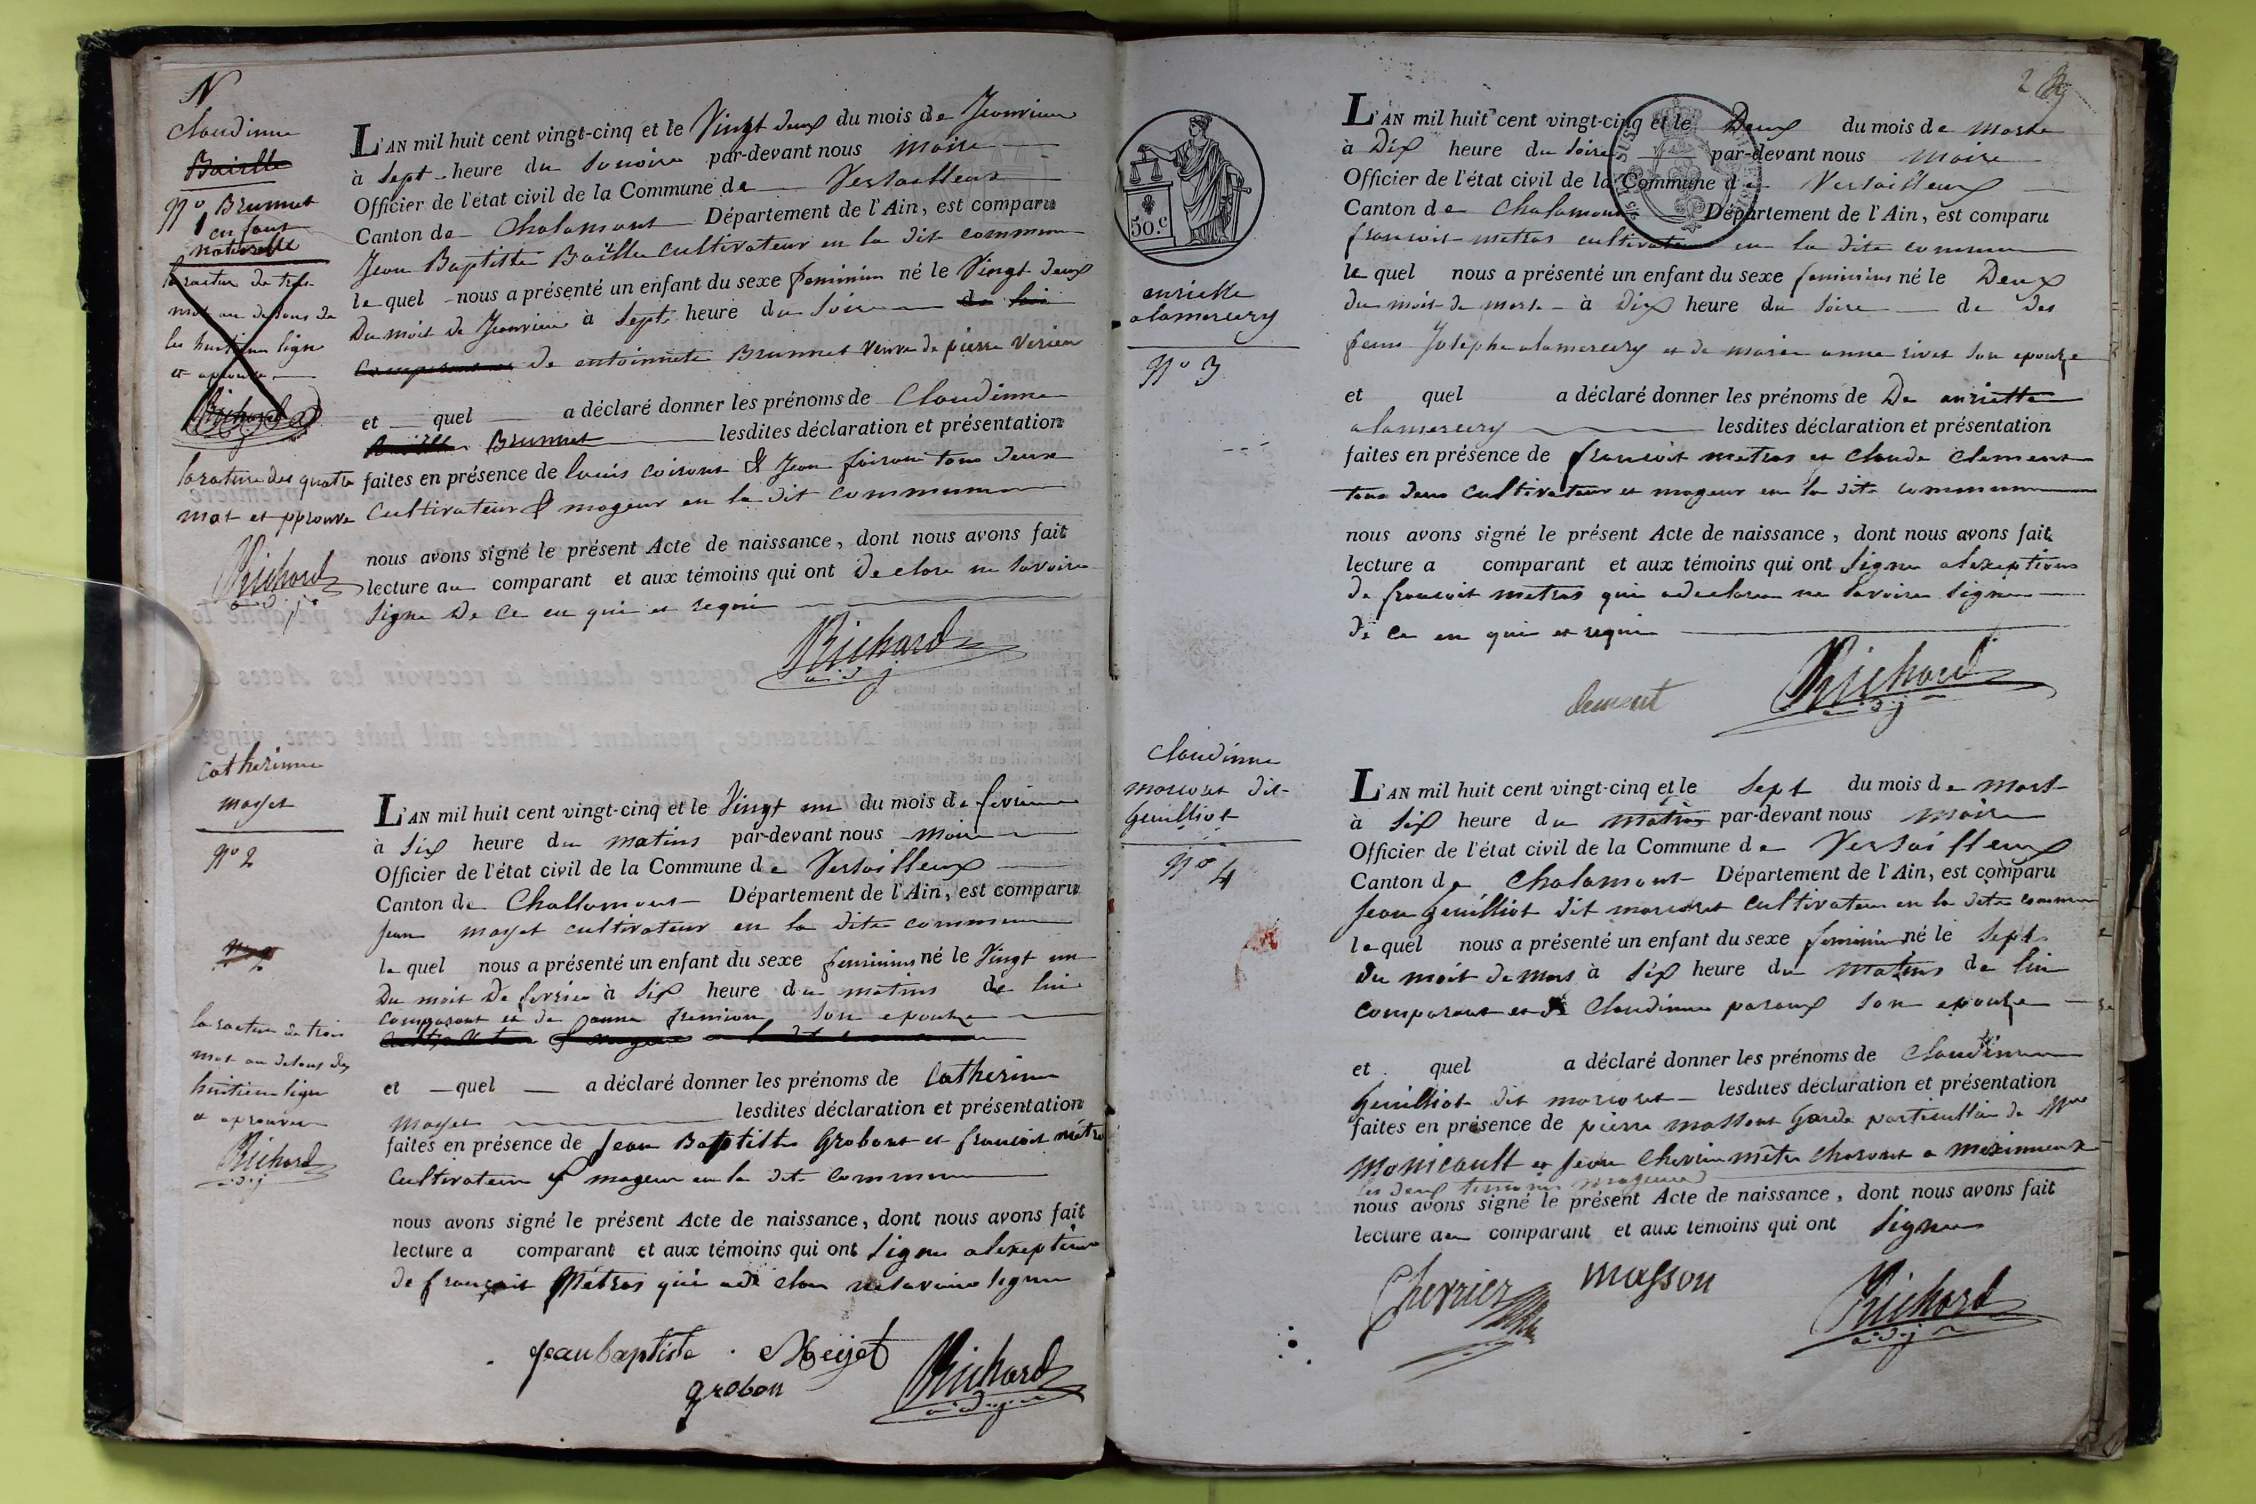 N
Claudinne
Baille
N° 1 Brunnet
enfant
naturelle
la racture de trois
mot au desous de
les huitieme ligne
et aprouvée
Richard
la rature des quatre
mot et pprouve
Richard
adj
L'AN mil huit cent vingt-cinq et le Vingt deux du mois de Jeanvier
à sept heure du souoire par-devant nous maire
Officier de l'état civil de la Commune de Versailleux
Canton de Chalamont Département de l'Ain, est comparu
Jean Baptiste Baille cultivateur en la dit commune
le quel nous a présenté un enfant du sexe feminin né le Vingt deux
du mois de Jeanvier à sept heure du soire de lui
comparant de entoinnete Brunnet veuve de pierre Verieu
et quel a déclaré donner les prénoms de Claudinne
Baille Brunnet lesdites déclaration et présentation
faites en présence de louis coiront & Jean foiron tous deux
cultivateur & mageur en la dit commune
nous avons signé le présent Acte de naissance, dont nous avons fait
lecture au comparant et aux témoins qui ont declare ne savoire
signe De ce en qui et requi
Richard
adj
Catherinne
mayet
N° 2
N° 2
la racture de trois
mot au desous des
huitieme ligne
et aprouvee
Richard
adj
L'AN mil huit cent vingt-cinq et le Vingt un du mois de fevrier
à six heure du matins par-devant nous maire
Officier de l'état civil de la Commune de Versailleux
Canton de Challamont Département de l'Ain, est comparu
Jean mayet cultivateur en la dite commune
le quel nous a présenté un enfant du sexe feminins né le Vingt un
Du mois De fevrier à six heure du matins de lui
comparant et de anne premion son epouse
et quel a déclaré donner les prénoms de Catherinne
mayet lesdites déclaration et présentation
faites en présence de Jean Baptiste Grobont et francoit métras
Cultivateur & mageur en la dite commune
nous avons signé le présent Acte de naissance, dont nous avons fait
lecture a comparant et aux témoins qui ont signe alexeptions
de françoit Métras qui a de clare ne savoire signe
jean baptiste Meyet
grobon
Richard
adj
2
50.c
enriette
alamercery
N° 3
L'AN mil huit cent vingt-cinq et le Deux du mois de marse
à Dix heure du soire par-devant nous maire
Officier de l'état civil de la Commune de Versailleux
Canton de Chalamont Département de l'Ain, est comparu
francoit metras cultivateur en la dite commune
le quel nous a présenté un enfant du sexe feminins né le Deux
du mois de marse à Dix heure du soire de des
feu Josephe alamercery et de marie anne rivet son epouse
et quel a déclaré donner les prénoms de De enriette
alamercery lesdites déclaration et présentation
faites en présence de francoit metras et Claude Clement
tous deux cultivateur et mageur en la dite commune
nous avons signé le présent Acte de naissance, dont nous avons fait
lecture a comparant et aux témoins qui ont signe alexeptions
de francoit metras qui a declaree ne savoire signe
de ce en qui et requi
clement
Richard
adj
Claudinne
marcoret dit
Genilliot
N° 4
L'AN mil huit cent vingt-cinq et le sept du mois de mars
à six heure du matins par-devant nous maire
Officier de l'état civil de la Commune de Versailleux
Canton de Chalamont Département de l'Ain, est comparu
Jean genilliot dit marcoret cultivateur en la dite commune
le quel nous a présenté un enfant du sexe feminin né le sept
du moit de mars à six heure du matins de lui
comparant et de Claudinne paroux son epouse
et quel a déclaré donner les prénoms de Claudinne
Genilliot dit marcoret lesdites déclaration et présentation
faites en présence de pierre massont garde particullier de Mr
Monicault et Jean Chevrier mêtre charont a meximieux
les deux temoins mageurs
nous avons signé le présent Acte de naissance, dont nous avons fait
lecture au comparant et aux témoins qui ont signe
Chevrier masson
Richard
adj